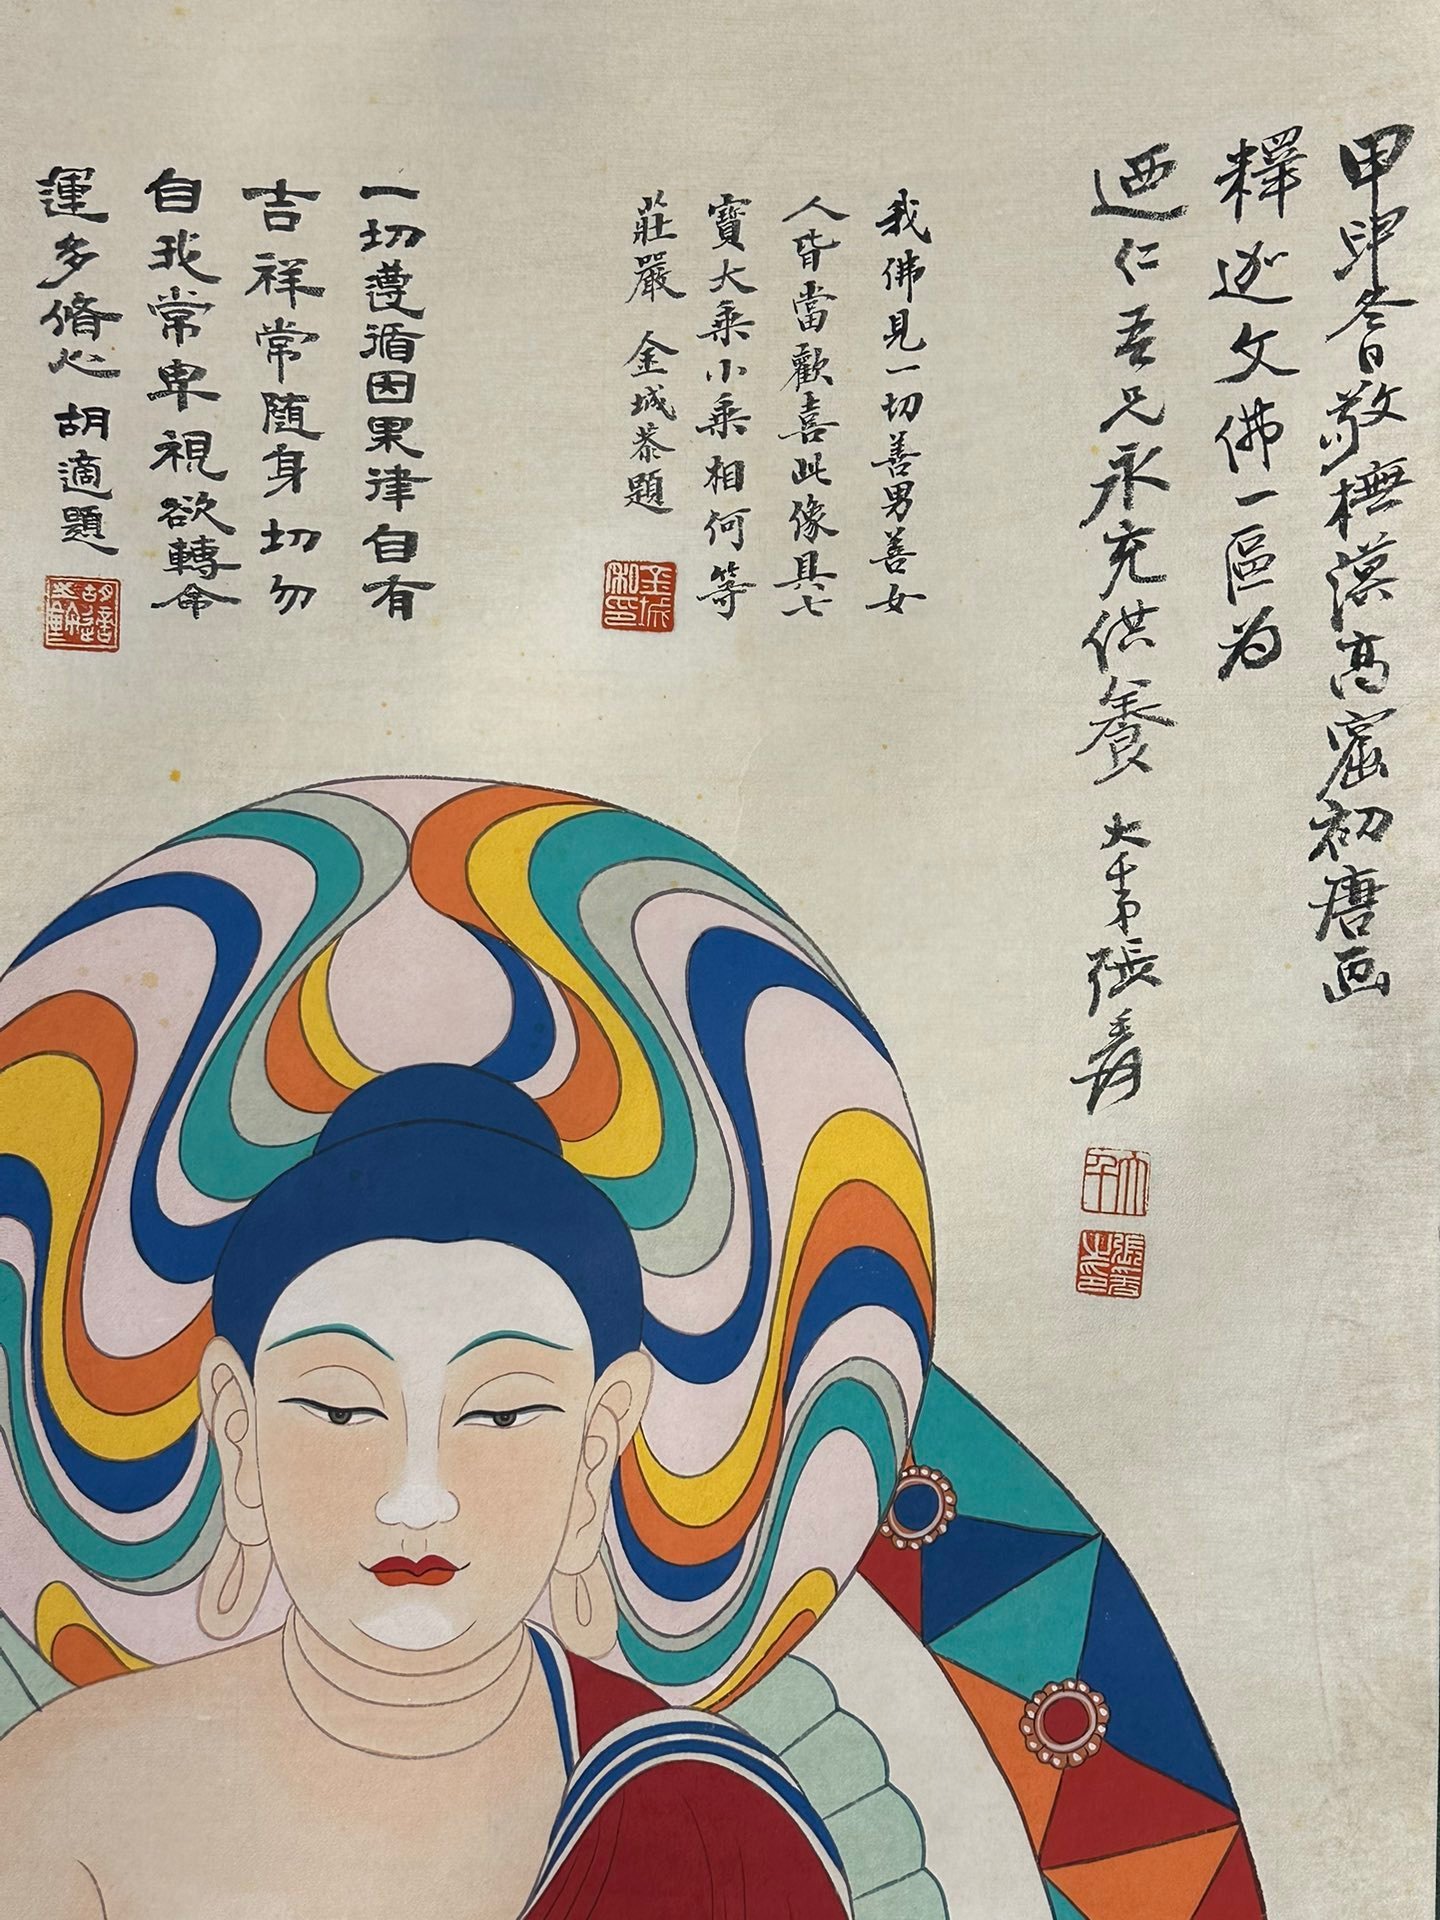 甲申冬日敬橅漠高窟初唐画
釋迦文佛一區为
迺仁吾兄永充供養 大千弟張爰
大千
張爰之印
我佛見一切善男善女
人皆當歡喜此像具七
寶大乘小乘相何等
莊嚴 金城恭題
金城私印
一切遵循因果律自有
吉祥常随身切勿
自我常卑視欲轉命
運多脩心 胡適題